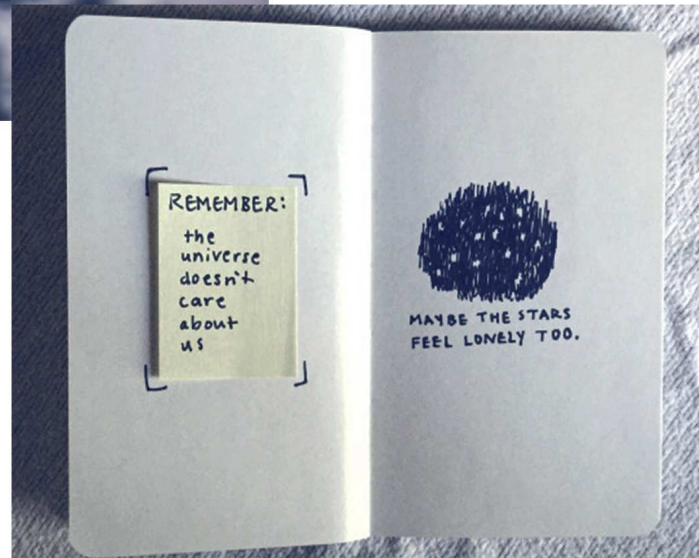 REMEMBER:
the
universe
doesn't
care
about
us
MAYBE THE STARS
FEEL LONELY TOO.